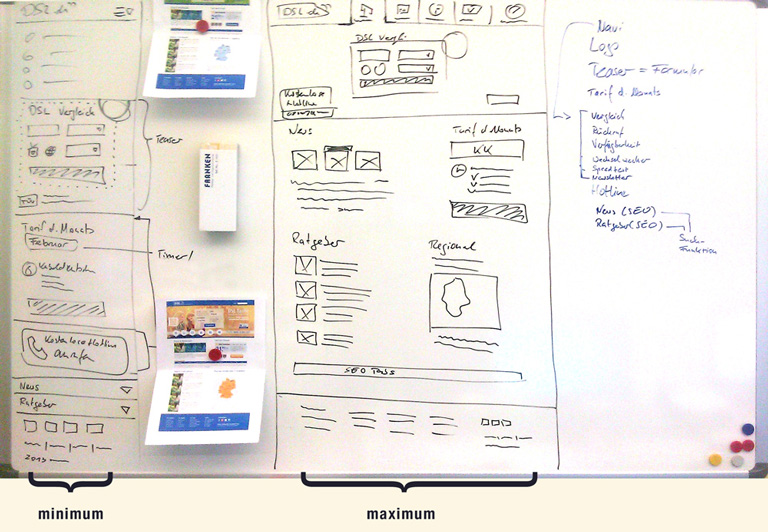 DSL.de
DSL Vergleich
Teaser
Tarif d. Monats
Februar
Timer!
Kostenlose Hotline
anrufen
News
Ratgeber
2013
FRANKEN
DSL.de
DSL Vergl.
Kostenlose
Hotline
News
Tarif d. Monats
KK
Ratgeber
Regional
SEO Links
Navi
Logo
Teaser = Formular
Tarif d. Monats
Vergleich
Rückruf
Verfügbarkeit
Wechselwecker
Speedtest
Newsletter
Hotline
News (SEO)
Ratgeber (SEO)
Such-
funktion
minimum
maximum